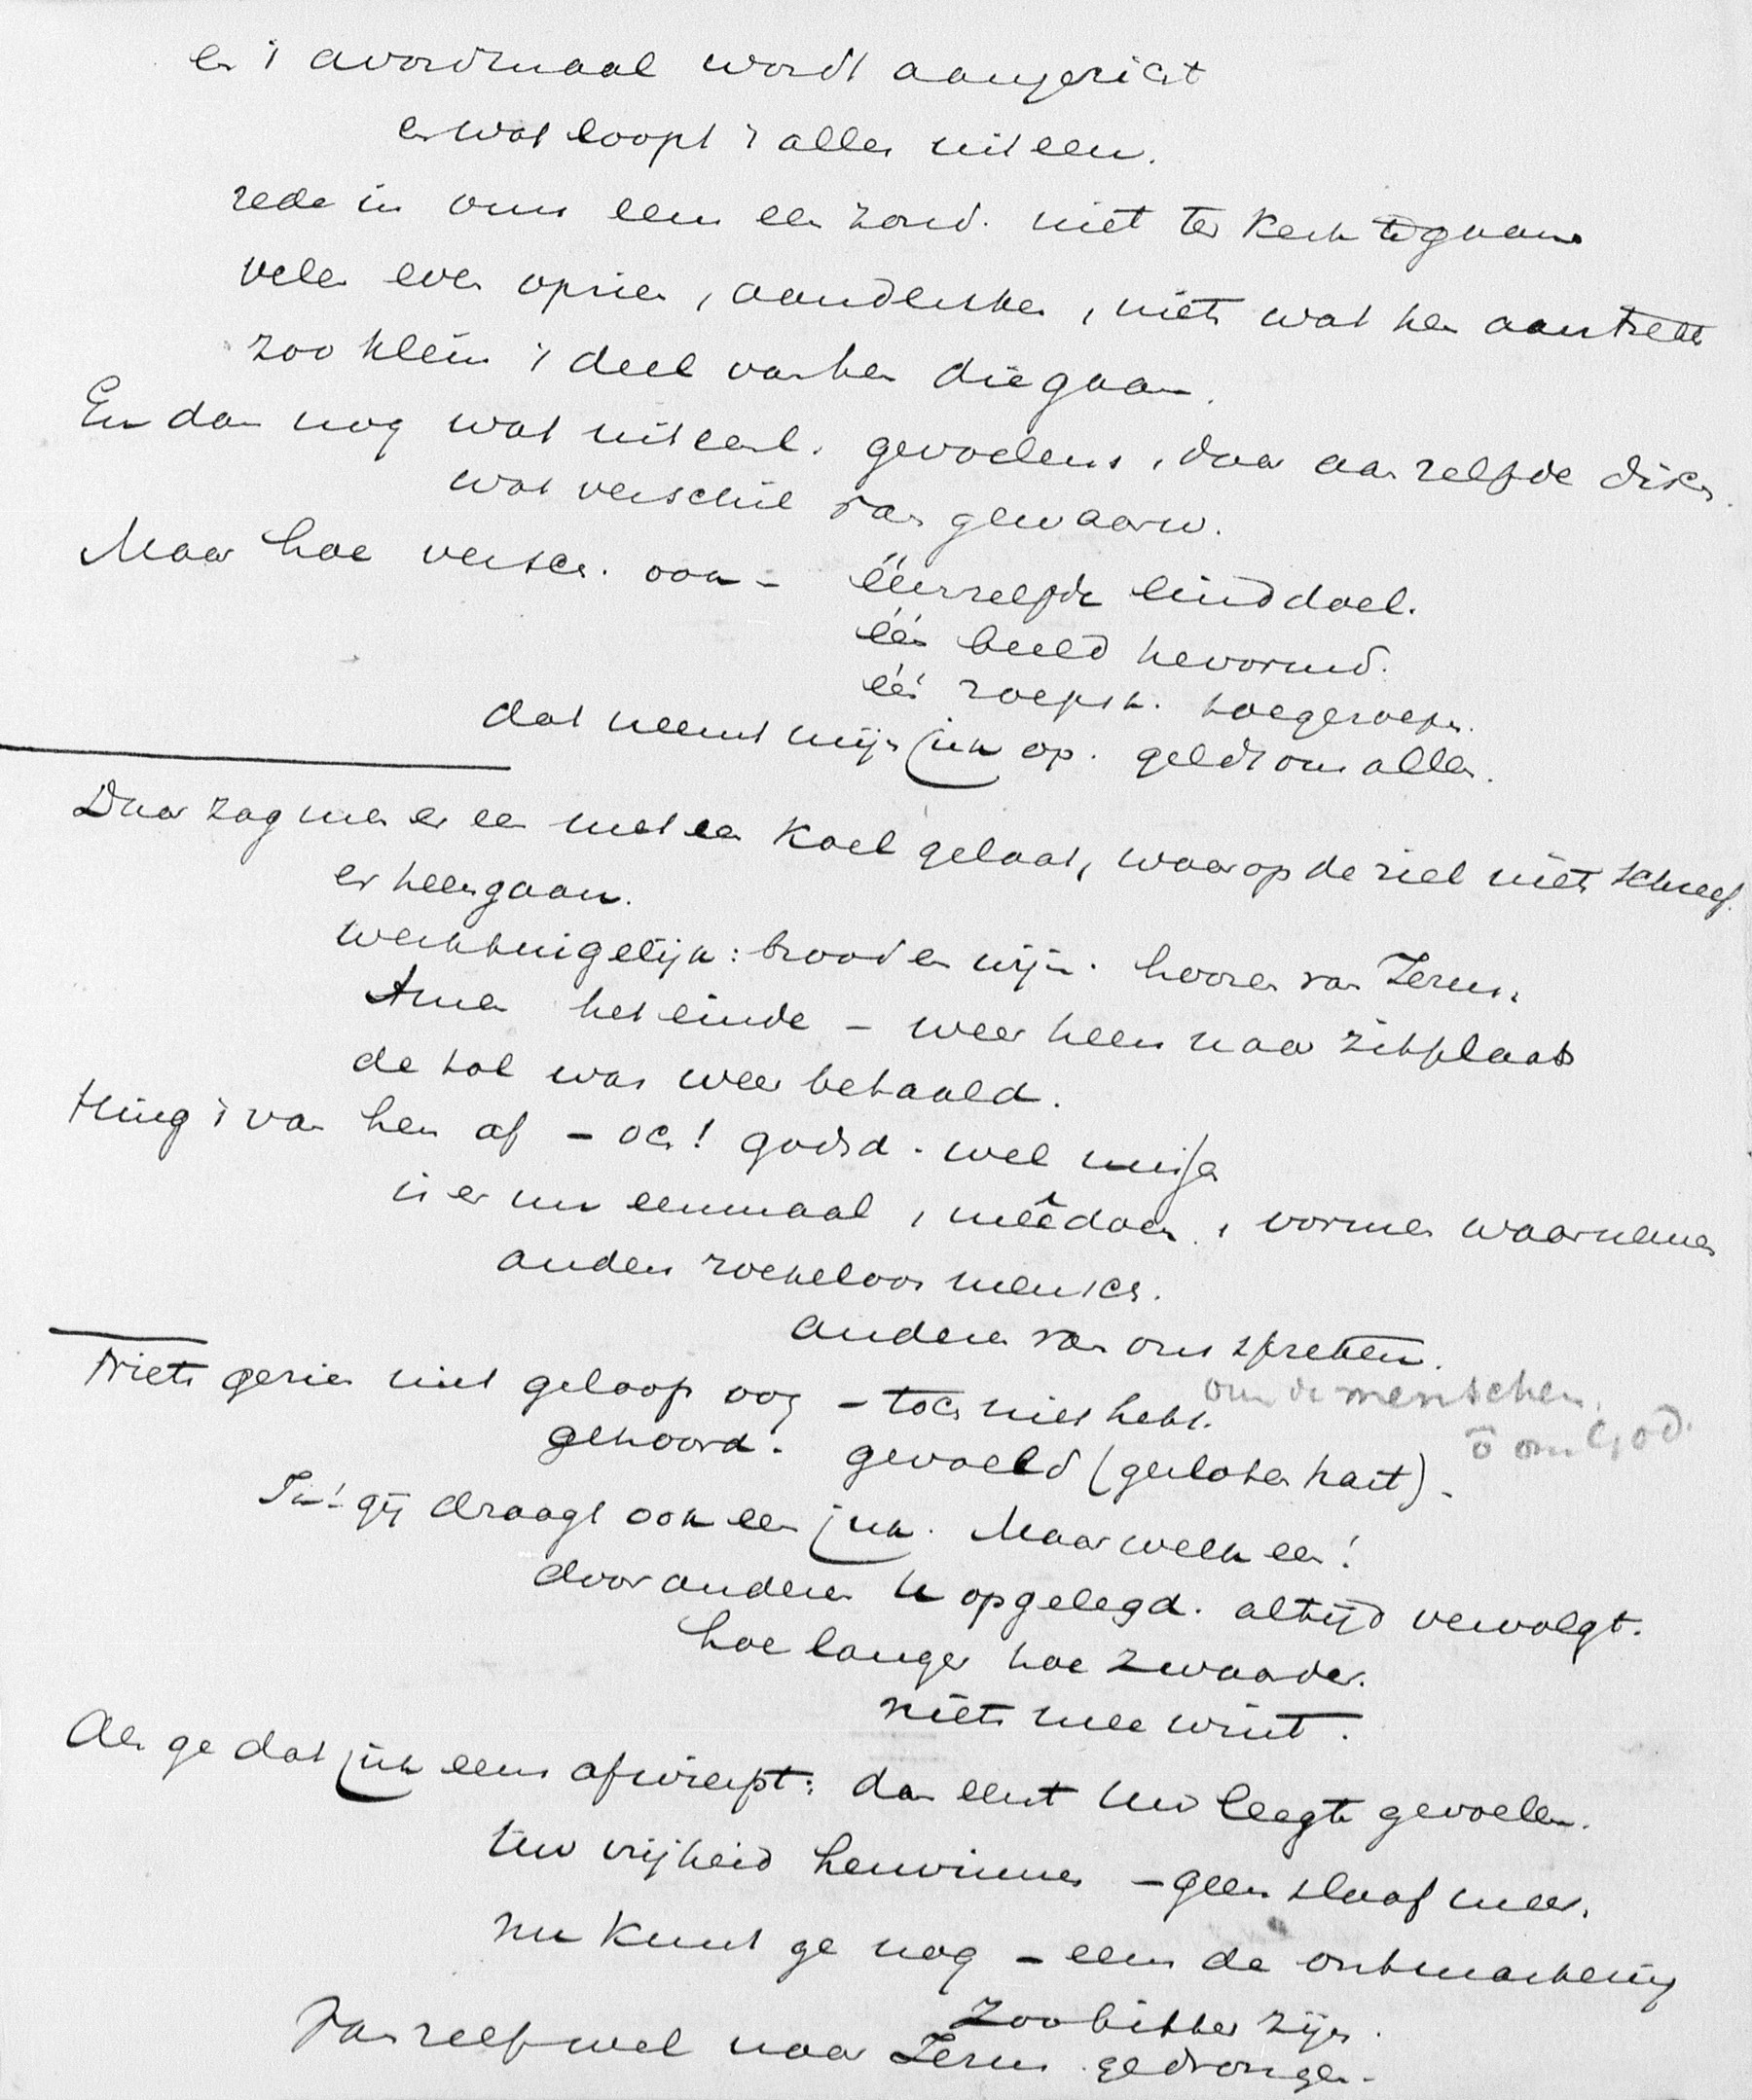 en 't avondmaal wordt aangericht
en wat loopt 't alles uiteen.
rede in ons eens een zond. niet ter kerk te gaan
velen even opzien, aandenken, niets wat hen aantrekt
zoo klein 't deel van hen die gaan.
En dan nog wat uiteenl. gevoelens, daar aan zelfde disch.
wat verschil van gewaarw.
Maar hoe versch. ook – éénzelfde einddoel.
één beeld hervormd.
één roepst. toegeroepen.
dat neemt mijn juk op. geldt ons allen.
Daar zag men er een met een koel gelaat, waarop de ziel niets schreef.
er heengaan.
werktuigelijk: brood en wijn. hooren van Jezus.
Amen het einde – weer heen naar zitplaats
de tol was weer betaald.
Hing 't van hen af – och! godsd. wel
is er nu eenmaal, meêdoen, vormen waarnemen
anders roekeloos mensch.
anderen van ons spreken.
om de menschen.
Niets gezien met geloofs oog – toch niet hebt.
ô om God.
gehoord. gevoeld (gesloten hart).
Ja! gij draagt ook een juk. Maar welk een!
door anderen U opgelegd. altijd vervolgt.
hoe langer hoe zwaarder.
niets mee wint.
Als ge dat juk eens afwerpt: dan eerst uw leegte gevoelen.
Uw vrijheid herwinnen – geen slaaf meer.
nu kunt ge nog – eens de ontmaskering
zoo bitter zijn.
Van zelf wel naar Jezus gedrongen.